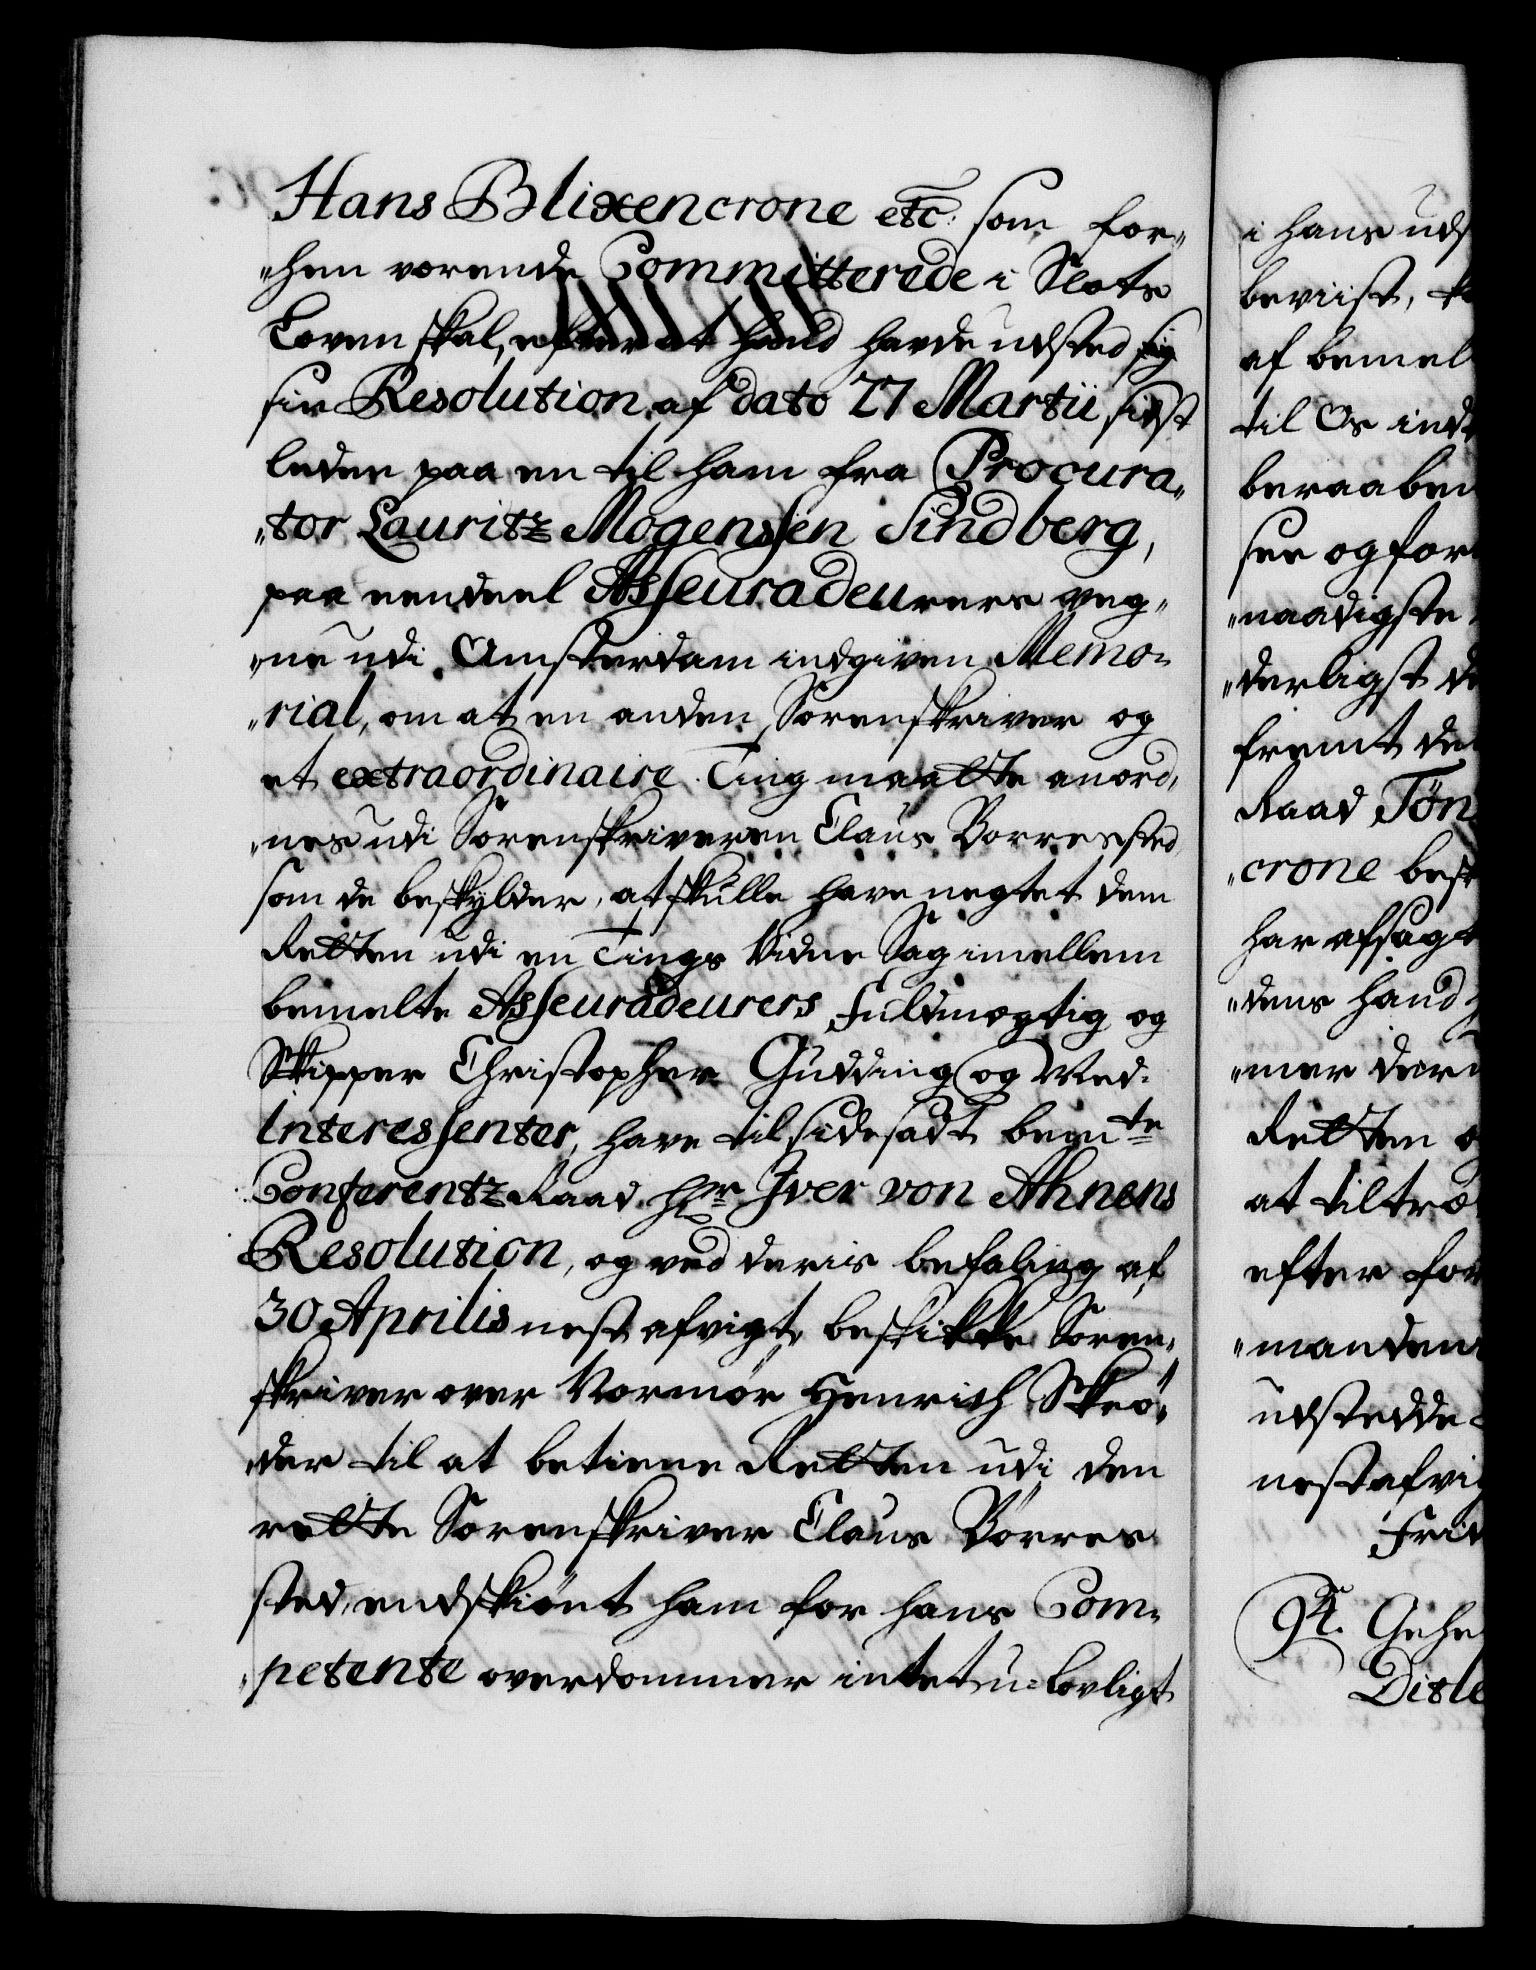 Hans Blixencrone etc: som for„
„hen værende Committerede i Slots
Loven skal, efter at hand hafde udsted
sin Resolution af dato 27 Martii sidst
leden paa en til ham fra Procura„
„tor Lauritz Mogenssen Sindberg,
paa eendeel Asseuradeurers veg„
„ne udi Amsterdam indgiven Memo„
„rial, om at en anden Sorenskriver og
et extraordinaire Ting maatte anord„
„nes udi Sorenskriveren Claus Borrested
som de beskylder, at skulle have negtet dem
Retten udi en Tings Vidne Sag imellem
bemelte Asseuradeurers Fuldmegtig og
Skipper Christopher Gudding og Med-
Interessenter, have tilsidesadt bemte
Conferentz Raad Hr Iver von Ahnens
Resolution, og ved deris befaling af
30 Aprilis nest afvigt, beskikke Soren„
skriver over Normør Henrich Skrö„
„der til at betiene Retten udi den
rette Sorenskriver Claus Börre
sted, endskiönt ham for hans Com„
„petente overdommer intet u=lovligt
i hans uds
beviist,
af bemel
til Os ind
beraaben
see og for
„naadigste
„derligst
fremt de
Raad Tön
„crone bes
har afsagt
„dens hand
„mer der
Retten
at tiltræ
efter for
„manden
udstedde
nest afvi
Frid
94. Gehe
Ditle